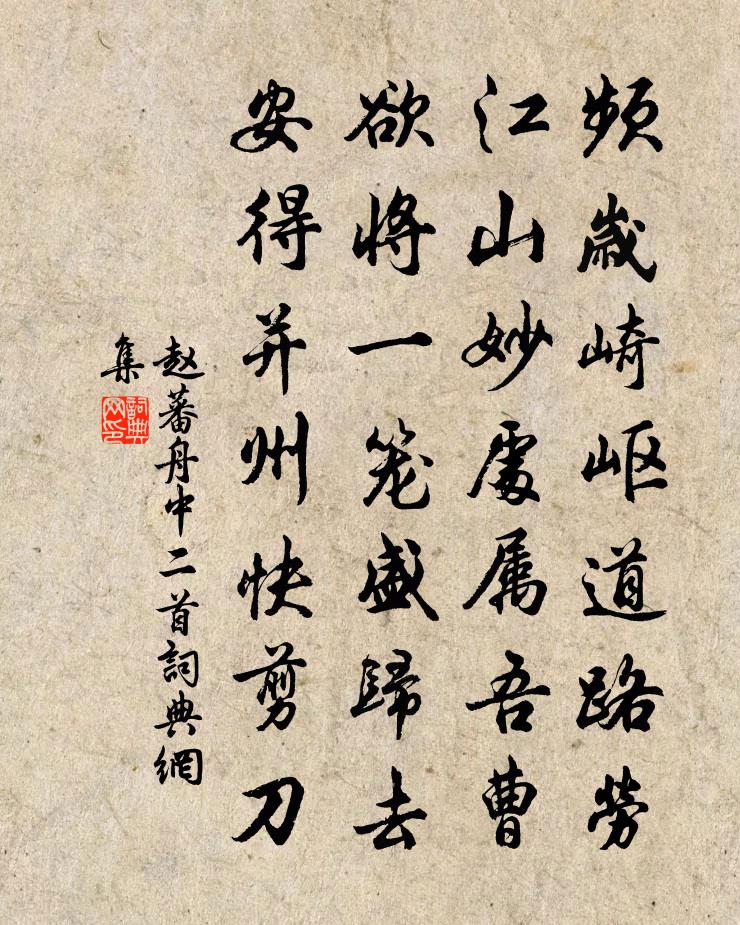 频歳崎岖道路勞
江山妙處属吾曹
欲将一笼盛歸去
安得并州快剪刀
赵蕃舟中二首詞典網
集
詞典
网印